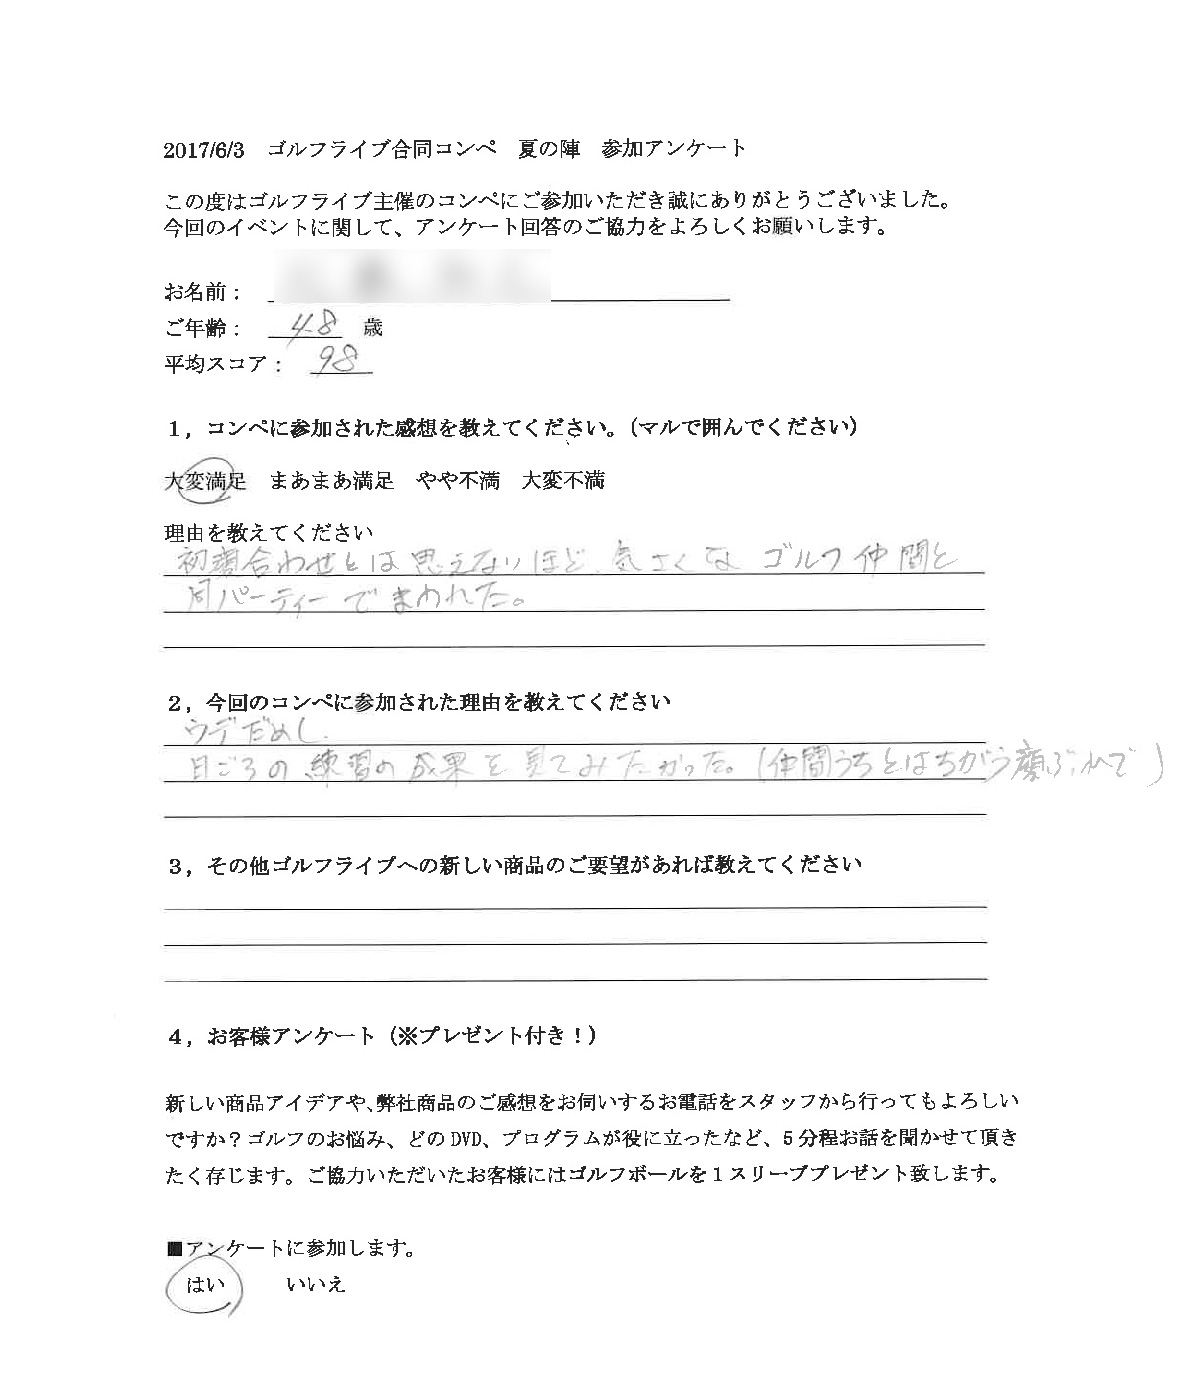 2017/6/3　ゴルフライブ合同コンペ　夏の陣　参加アンケート
この度はゴルフライブ主催のコンペにご参加いただき誠にありがとうございました。
今回のイベントに関して、アンケート回答のご協力をよろしくお願いします。
お名前：
ご年齢：　48　歳
平均スコア：　98
１，コンペに参加された感想を教えてください。（マルで囲んでください）
大変満足　まあまあ満足　やや不満　大変不満
理由を教えてください
初顔合わせとは思えないほど、気さくな ゴルフ仲間と
同パーティーでまわれた。
２，今回のコンペに参加された理由を教えてください
ウデだめし.
日ごろの練習の成果を見てみたかった。(仲間うちとはちがう顔ぶれで)
３，その他ゴルフライブへの新しい商品のご要望があれば教えてください
４，お客様アンケート（※プレゼント付き！）
新しい商品アイデアや、弊社商品のご感想をお伺いするお電話をスタッフから行ってもよろしい
ですか？ゴルフのお悩み、どの DVD、プログラムが役に立ったなど、５分程お話を聞かせて頂き
たく存じます。ご協力いただいたお客様にはゴルフボールを１スリーブプレゼント致します。
■アンケートに参加します。
はい　　いいえ